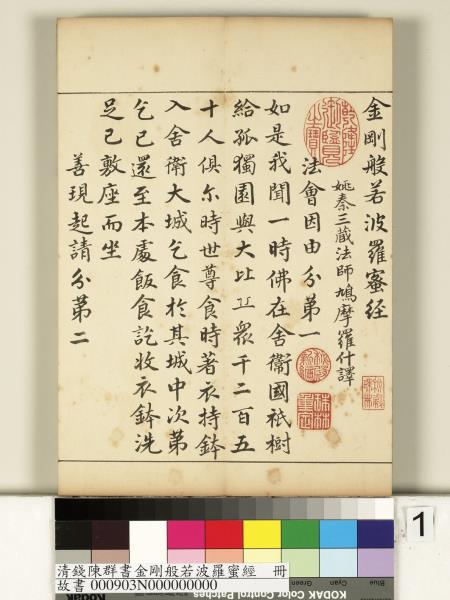 金剛般若波羅蜜経
姚秦三藏法師鳩摩羅什譯
乾隆御覽之寶
法會因由分第一
秘殿新編
珠林重定
秘殿珠林
如是我聞一時佛在舍衛國祇樹
給孤獨園與大比丘眾千二百五
十人俱尒時世尊食時著衣持鉢
入舍衛大城乞食於其城中次第
乞已還至本處飯食訖收衣鉢洗
足已敷座而坐
善現起請分第二
1
清錢陳群書金剛般若波羅蜜經 冊
故書 000903N000000000
Blue Cyan Green
KODAK Color Control Patches